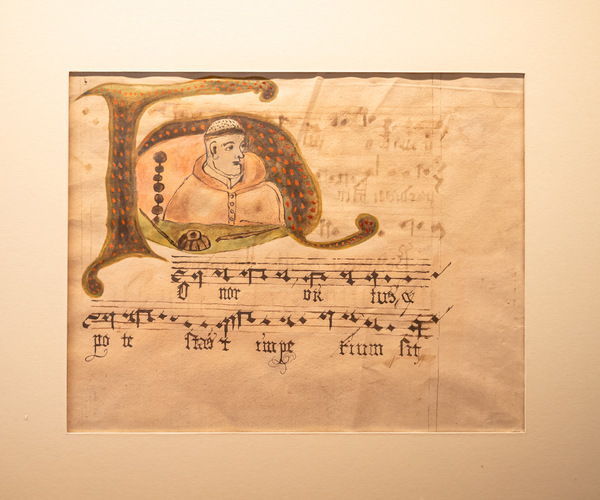 HO nor vir tus, &
po te stas & impe rium sit